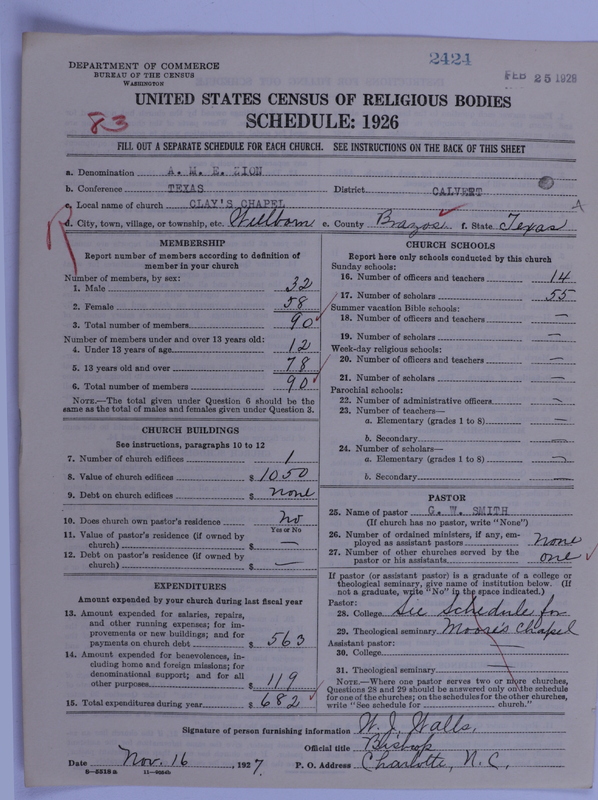 2424
DEPARTMENT OF COMMERCE
BUREAU OF THE CENSUS
WASHINGTON
FEB 25 1928
UNITED STATES CENSUS OF RELIGIOUS BODIES
83
SCHEDULE: 1926
FILL OUT A SEPARATE SCHEDULE FOR EACH CHURCH. SEE INSTRUCTIONS ON THE BACK OF THIS SHEET
a. Denomination A. M. E. ZION
b. Conference TEXAS District CALVERT
c. Local name of church CLAY'S CHAPEL
d. City, town, village, or township, etc. Wellborn e. County Brazos f. State Texas
MEMBERSHIP
Report number of members according to definition of
member in your church
Number of members, by sex:
1. Male 32
2. Female 58
3. Total number of members 90
Number of members under and over 13 years old:
4. Under 13 years of age 12
5. 13 years old and over 78
6. Total number of members 90
NOTE.—The total given under Question 6 should be
same as the total of males and females given under Question 3.
CHURCH BUILDINGS
See instructions, paragraphs 10 to 12
7. Number of church edifices 1
8. Value of church edifices $ 1050
9. Debt on church edifices $ none
10. Does church own pastor's residence no
Yes or No
11. Value of pastor's residence (if owned by
church) $ —
12. Debt on pastor's residence (if owned by
church) $ —
EXPENDITURES
Amount expended by your church during last fiscal year
13. Amount expended for salaries, repairs,
and other running expenses; for im-
provements or new buildings; and for
payments on church debt $ 563
14. Amount expended for benevolences, in-
cluding home and foreign missions; for
denominational support; and for all
other purposes $ 119
15. Total expenditures during year $ 682
CHURCH SCHOOLS
Report here only schools conducted by this church
Sunday schools:
16. Number of officers and teachers 14
17. Number of scholars 55
Summer vacation Bible schools:
18. Number of officers and teachers —
19. Number of scholars —
Week-day religious schools:
20. Number of officers and teachers —
21. Number of scholars —
Parochial schools:
22. Number of administrative officers —
23. Number of teachers—
a. Elementary (grades 1 to 8) —
b. Secondary —
24. Number of scholars—
a. Elementary (grades 1 to 8) —
b. Secondary —
PASTOR
25. Name of pastor G. W. SMITH
(If church has no pastor, write "None")
26. Number of ordained ministers, if any, em-
ployed as assistant pastors none
27. Number of other churches served by the
pastor or his assistants one
If pastor (or assistant pastor) is a graduate of a college or
theological seminary, give name of institution below. (If
not a graduate, write "No" in the space indicated.)
Pastor:
28. College See Schedule for
29. Theological seminary Moore's Chapel
Assistant pastor:
30. College —
31. Theological seminary —
NOTE.—Where one pastor serves two or more churches,
Questions 28 and 29 should be answered only on the schedule
for one of the churches; on the schedules for the other churches,
write "See schedule for church."
Signature of person furnishing information W. J. Walls,
Official title Bishop
Date Nov. 16, 1927. P. O. Address Charlotte, N. C.